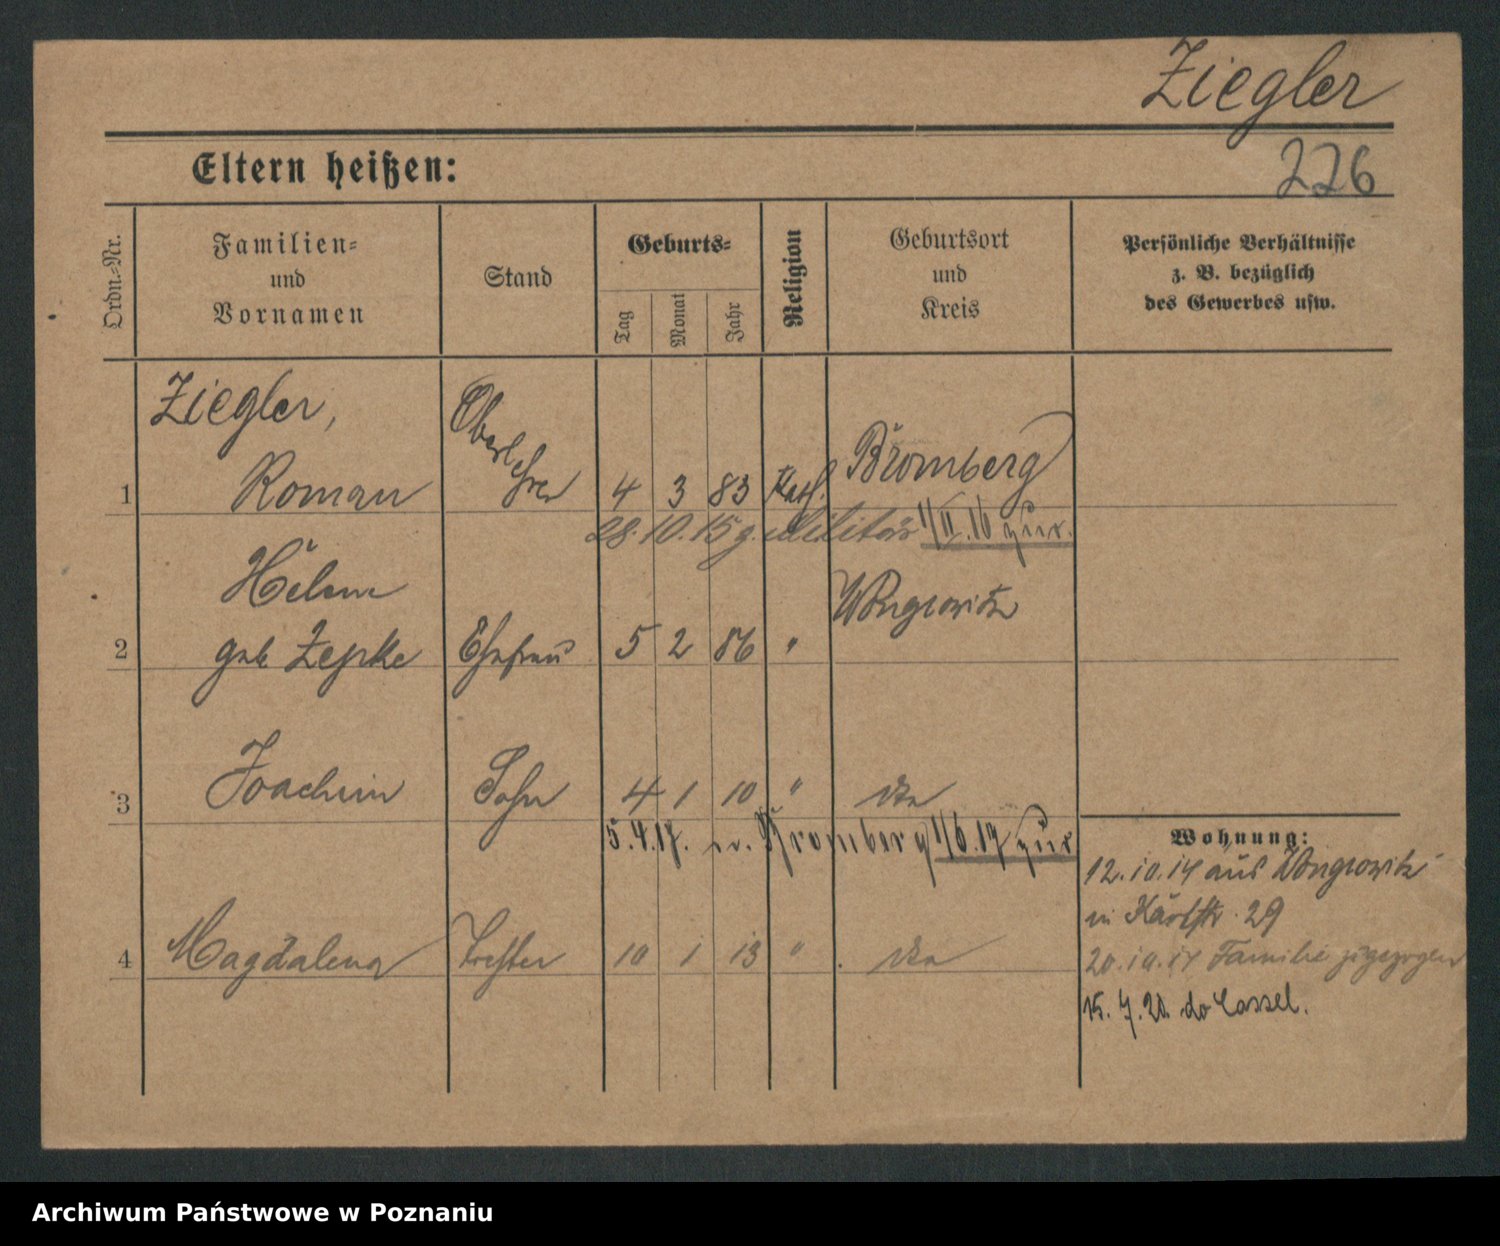 Ziegler
Eltern heißen:
226
Ordn.-Nr.
Familien-
und
Vornamen
Stand
Geburts-
Tag
Monat
Jahr
Religion
Geburtsort
und
Kreis
Persönliche Verhältnisse
z. B. bezüglich
des Gewerbes usw.
Ziegler,
1 Roman Oberlehrer 4 3 83 Kath. Bromberg
28.10.15 z. Militär 1/11.16 zur.
Helene
2 geb Zepke Ehefrau 5 2 86 " Wongrowitz
3 Joachim Sohn 4 1 10 " dto
5.4.17. n. Bromberg 1/6.17 zur
Wohnung:
12.10.14 aus Wongrowitz
in Karlstr. 29
4 Magdalena Tochter 10 1 13 " dto
20.10.14 Familie zugezogen
15.7.20. do Cassel.
Archiwum Państwowe w Poznaniu